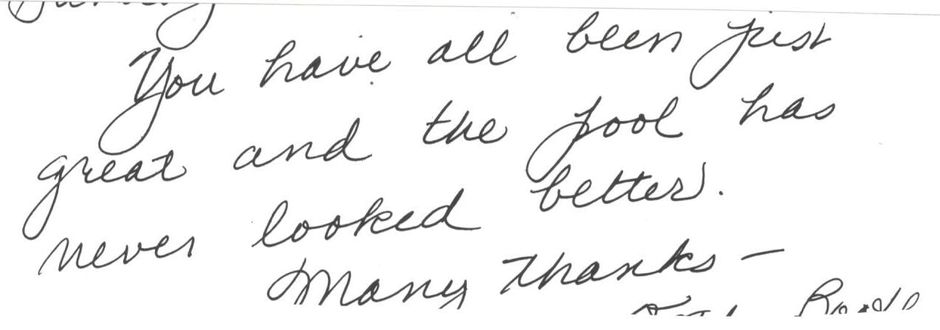 You have all been just
great and the pool has
never looked better.
Many thanks —